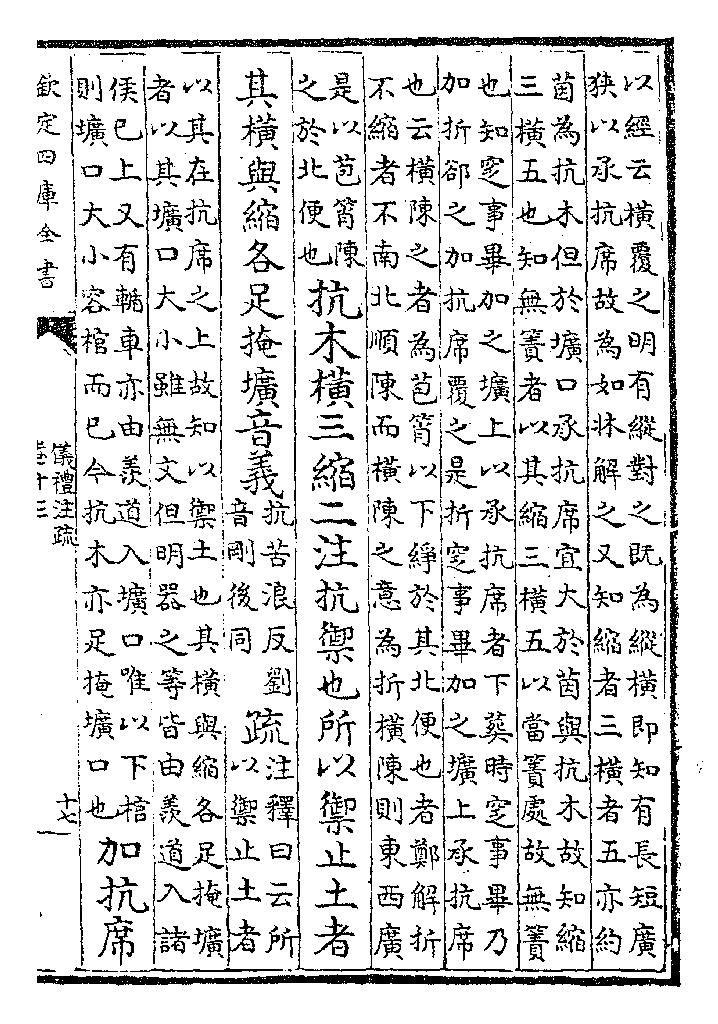 以經云橫覆之明有縱對之既為縱橫即知有長短廣
狹以承抗席故為如牀解之又知縮者三橫者五亦約
茵為抗木但於壙口承抗席宜大於茵與抗木故知縮
三橫五也知無簀者以其縮三橫五以當簀處故無簀
也知窆事畢加之壙上以承抗席者下葬時窆事畢乃
加折郤之加抗席覆之是折窆事畢加之壙上承抗席
也云橫陳之者為苞筲以下綪於其北便也者鄭解折
不縮者不南北順陳而橫陳之意為折橫陳則東西廣
是以苞筲陳
之於北便也
抗木橫三縮二注抗禦也所以禦止土者
其橫與縮各足掩壙音義
抗苦浪反劉
音剛後同
疏
注釋曰云所
以禦止土者
以其在抗席之上故知以禦土也其橫與縮各足掩壙
者以其壙口大小雖無文但明器之等皆由羨道入諸
侯已上又有輴車亦由羨道入壙口唯以下棺
則壙口大小容棺而已今抗木亦足掩壙口也
加抗席
欽定四庫全書
儀禮注疏
卷十三
十七